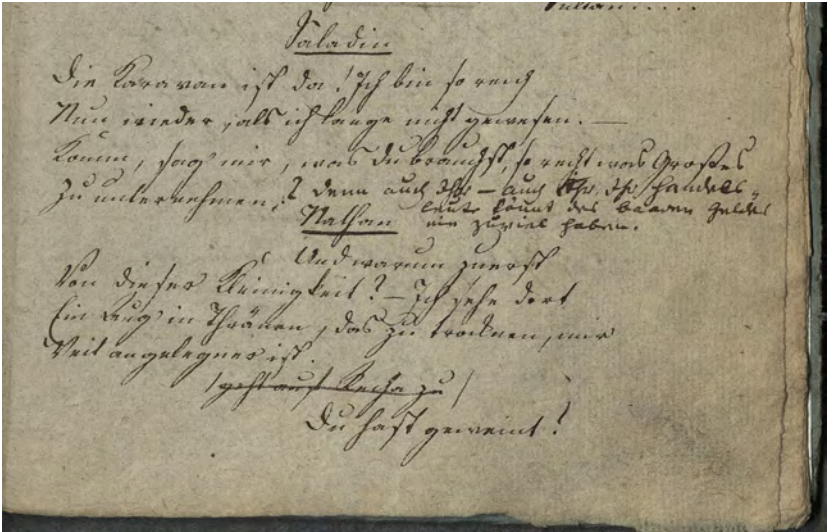 Sultan.....
Saladin
Die Karavan ist da! Ich bin so reich
Nun wieder, als ich lange nicht gewesen. —
Komm, sag' mir, was du brauchst, so recht was Großes
Zu unternehmen! denn auch Ihr — auch Ihr, Ihr Handels-
leute könnt des baaren Geldes
nie zuviel haben.
Nathan
Und warum zuerst
Von dieser Kleinigkeit? — Ich sehe dort
Ein Aug' in Thränen, das zu trocknen, mir
Weit angelegner ist.
(geht auf Recha zu)
Du hast geweint?